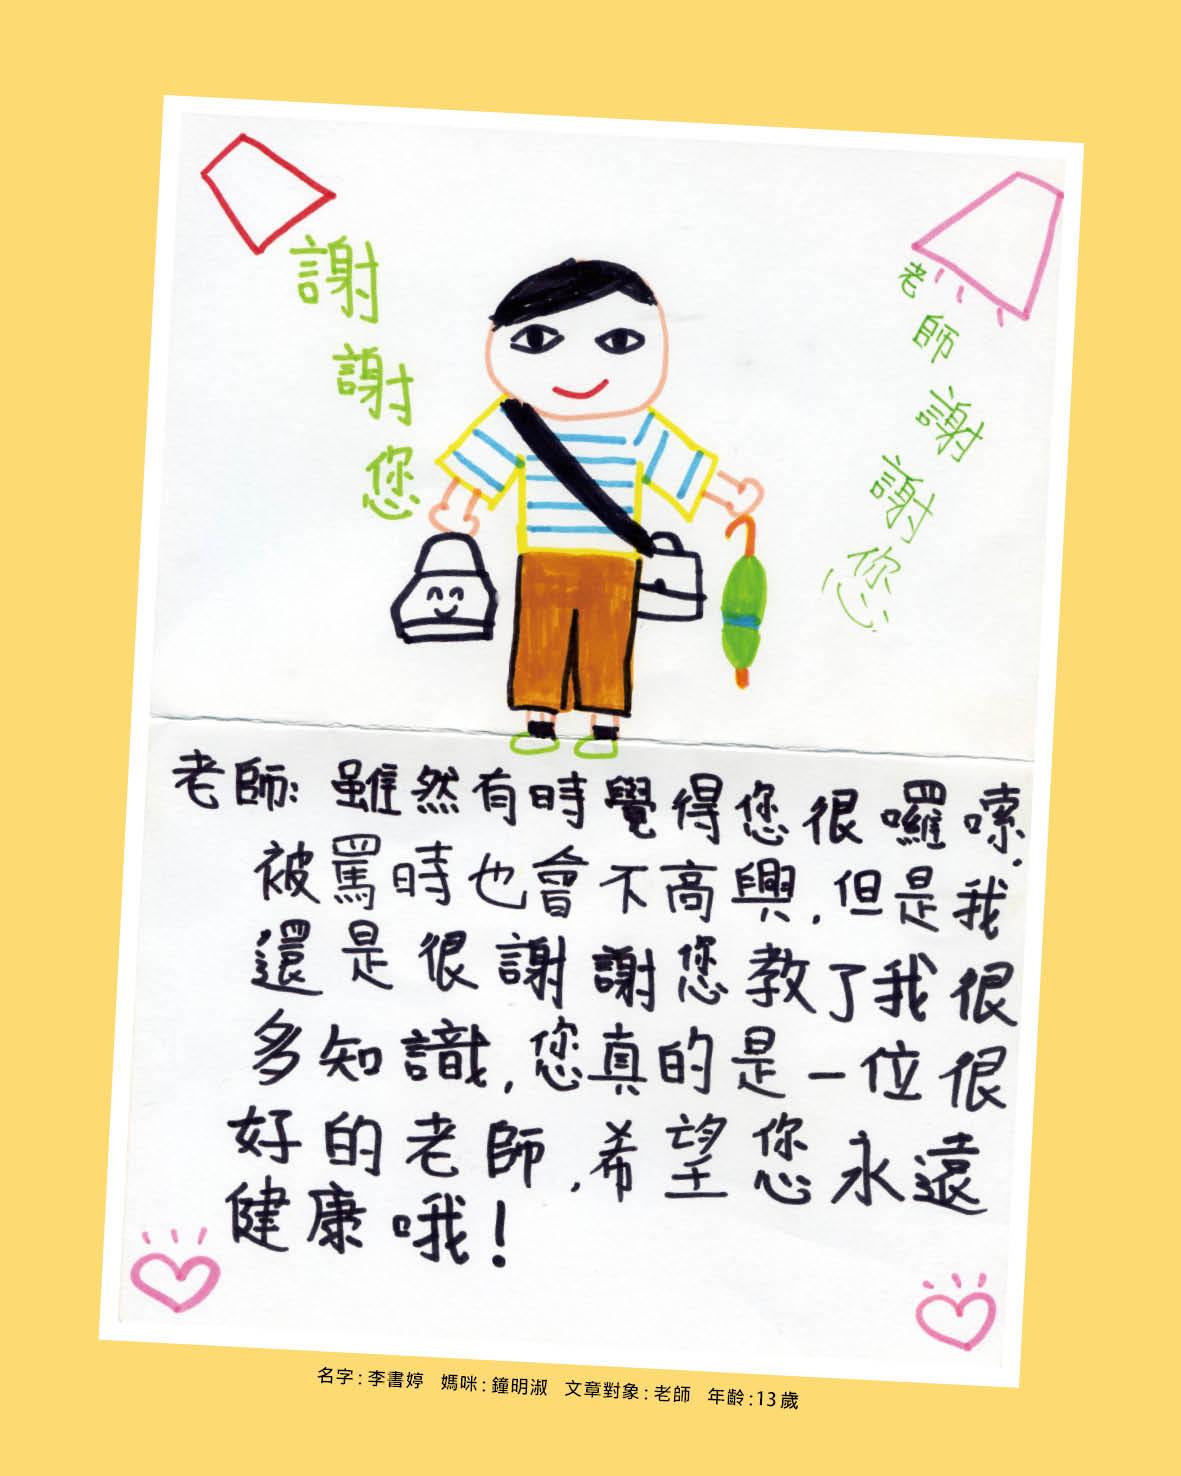 謝謝您
老師謝謝您
老師:雖然有時覺得您很囉嗦,
被罵時也會不高興,但是我
還是很謝謝您教了我很
多知識,您真的是一位很
好的老師,希望您永遠
健康哦!
名字:李書婷 媽咪:鐘明淑 文章對象:老師 年齡:13歲